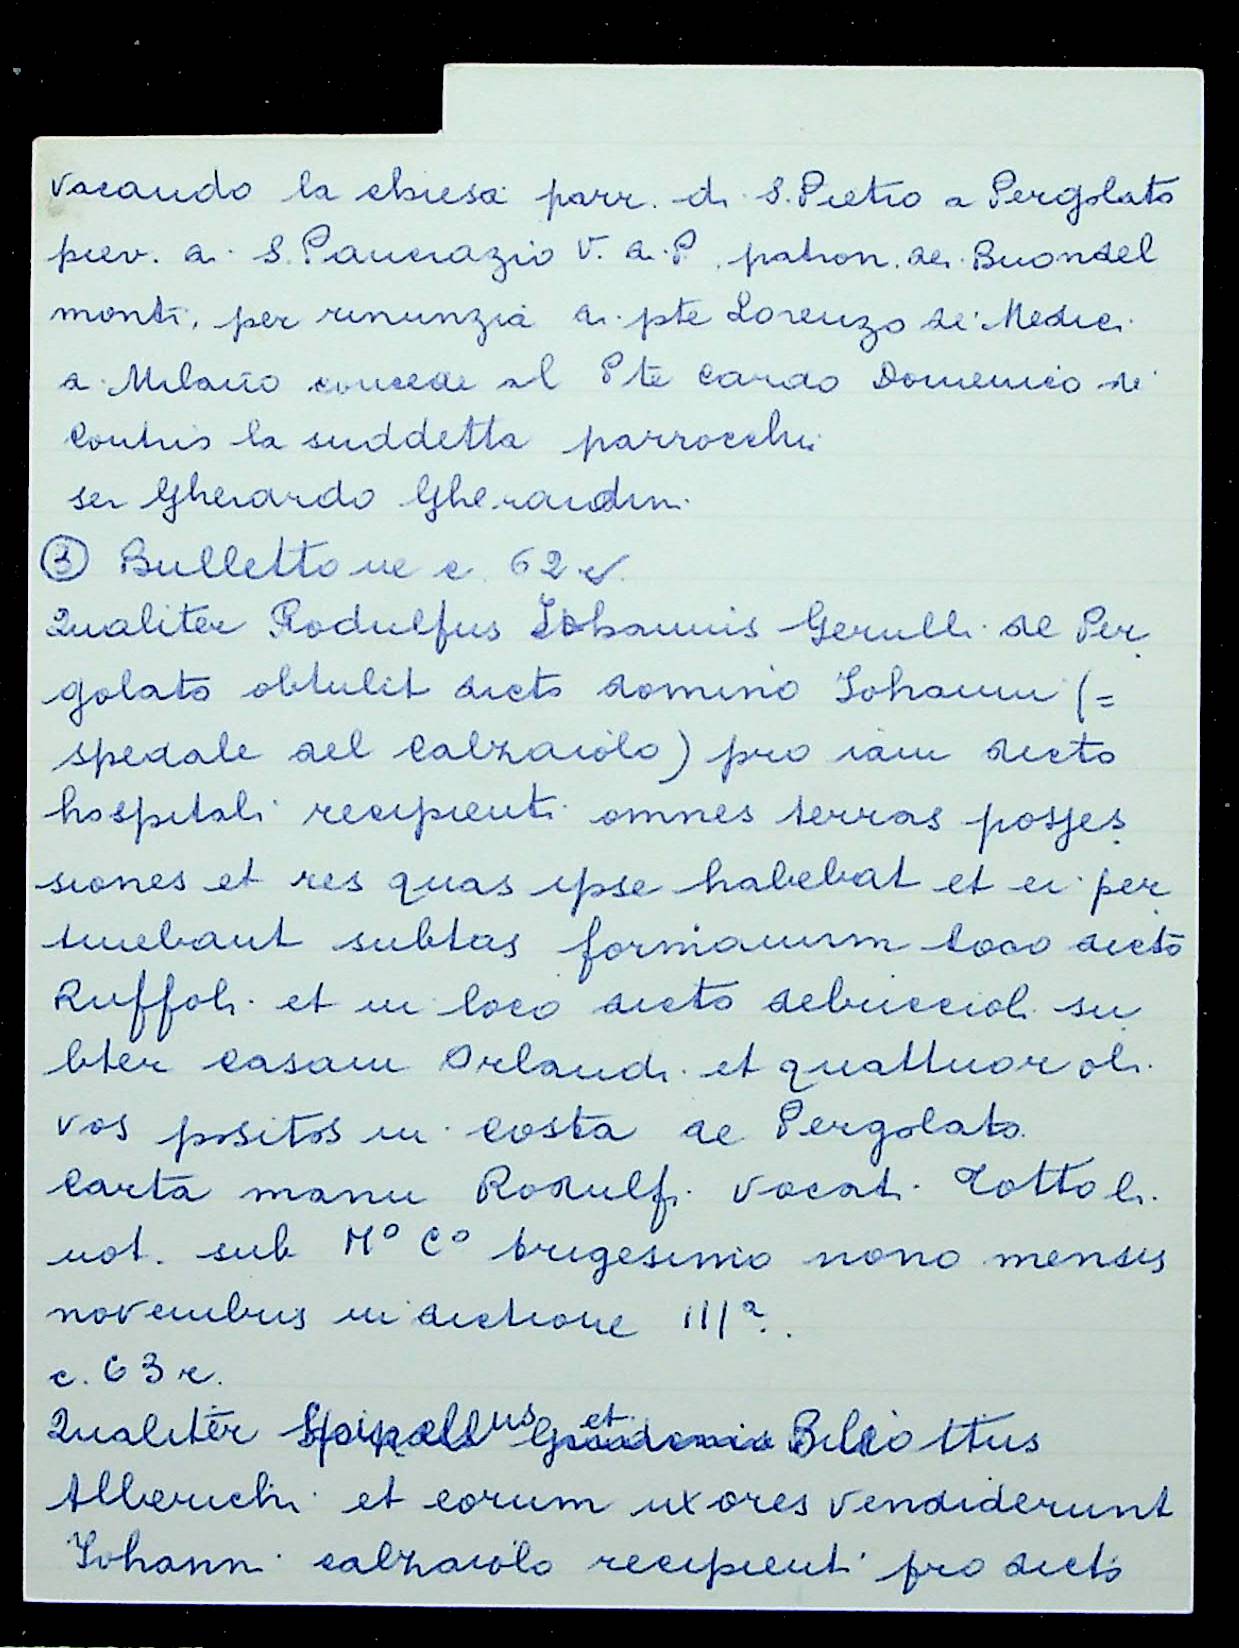 vacando la chiesa parr. di S. Pietro a Pergolato
piev. di S. Pancrazio V. di P. patron. dei Buondel
monti, per rinunzia di pte Lorenzo de' Medici
a Milano concede al Pte Cardo Domenico de'
la suddetta parrocchia
ser Gherardo Gherardini
③ Bullettone c. 62 v.
Qualiter Rodulfus Iohannis Gerulli de Per
golato obtulit dicto domino Iohanni (=
spedale del Calzaiolo) pro iam dicto
hospitali recipienti omnes terras posses
siones et res quas ipse habebat et ei per
tinebant subtus loco dicto
Ruffoli et in loco dicto debuccioli su
bter casam Orlandi et quattuor oli
vos positos in costa de Pergolato.
Carta manu Rodulfi vocati Tottoli
not. sub M° C° trigesimo nono mensis
novembris indictione III ª.
c. 63 r.
Qualiter Spinellus et Biliottus
Alberichi et eorum uxores vendiderunt
Iohanni calzaiolo recipienti pro dicto